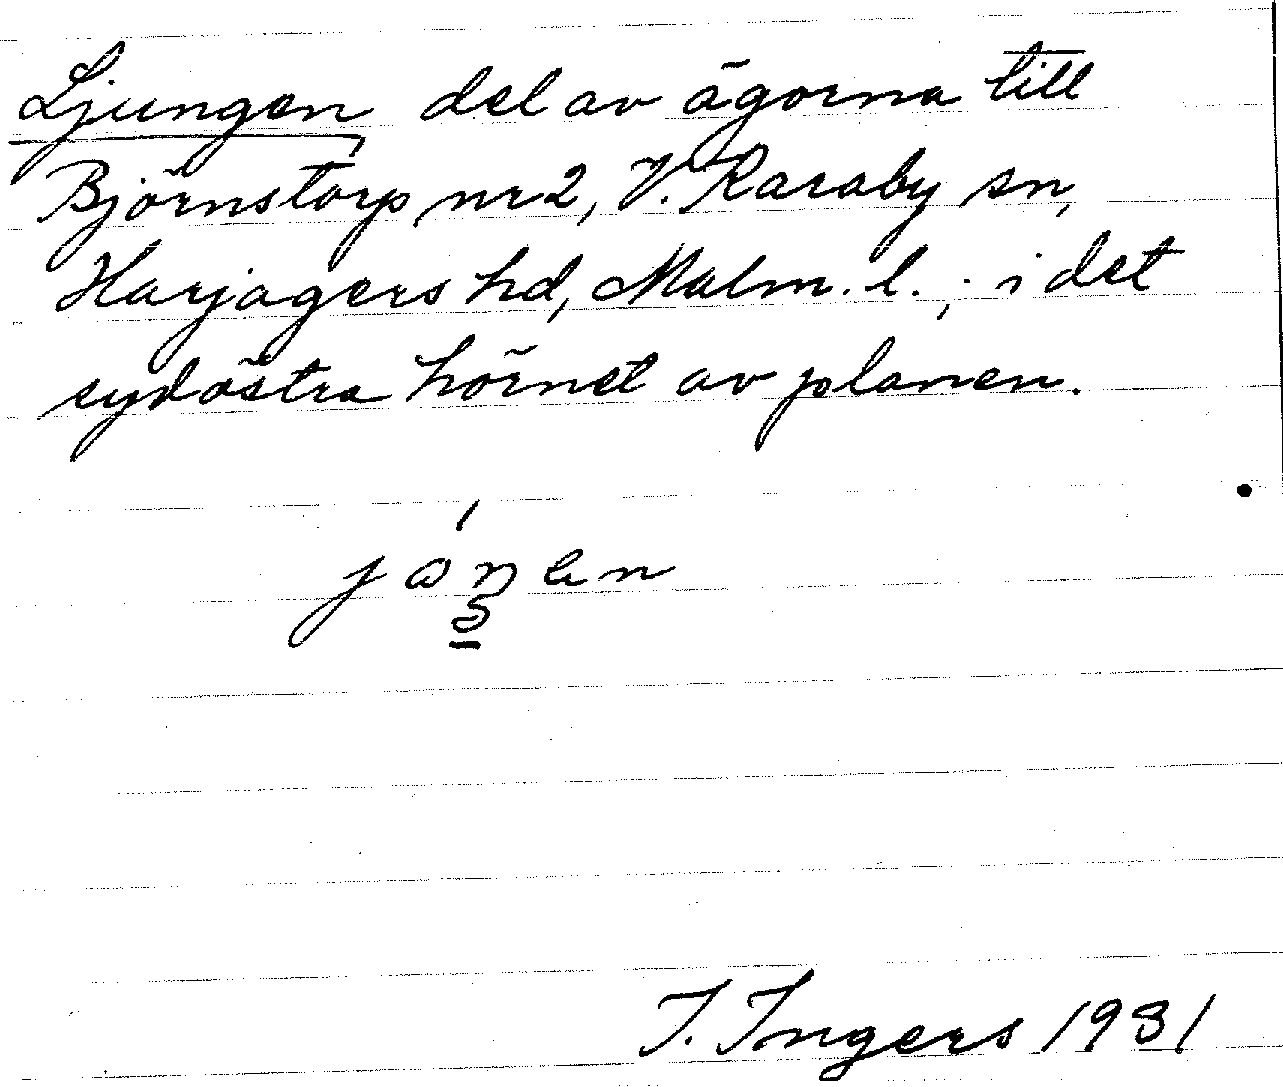 Ljungen del av ägorna till
Björnstorp nr 2, V. Karaby sn,
Harjagers hd, Malm. l.; i det
sydöstra hörnet av planen.
I. Ingers 1931